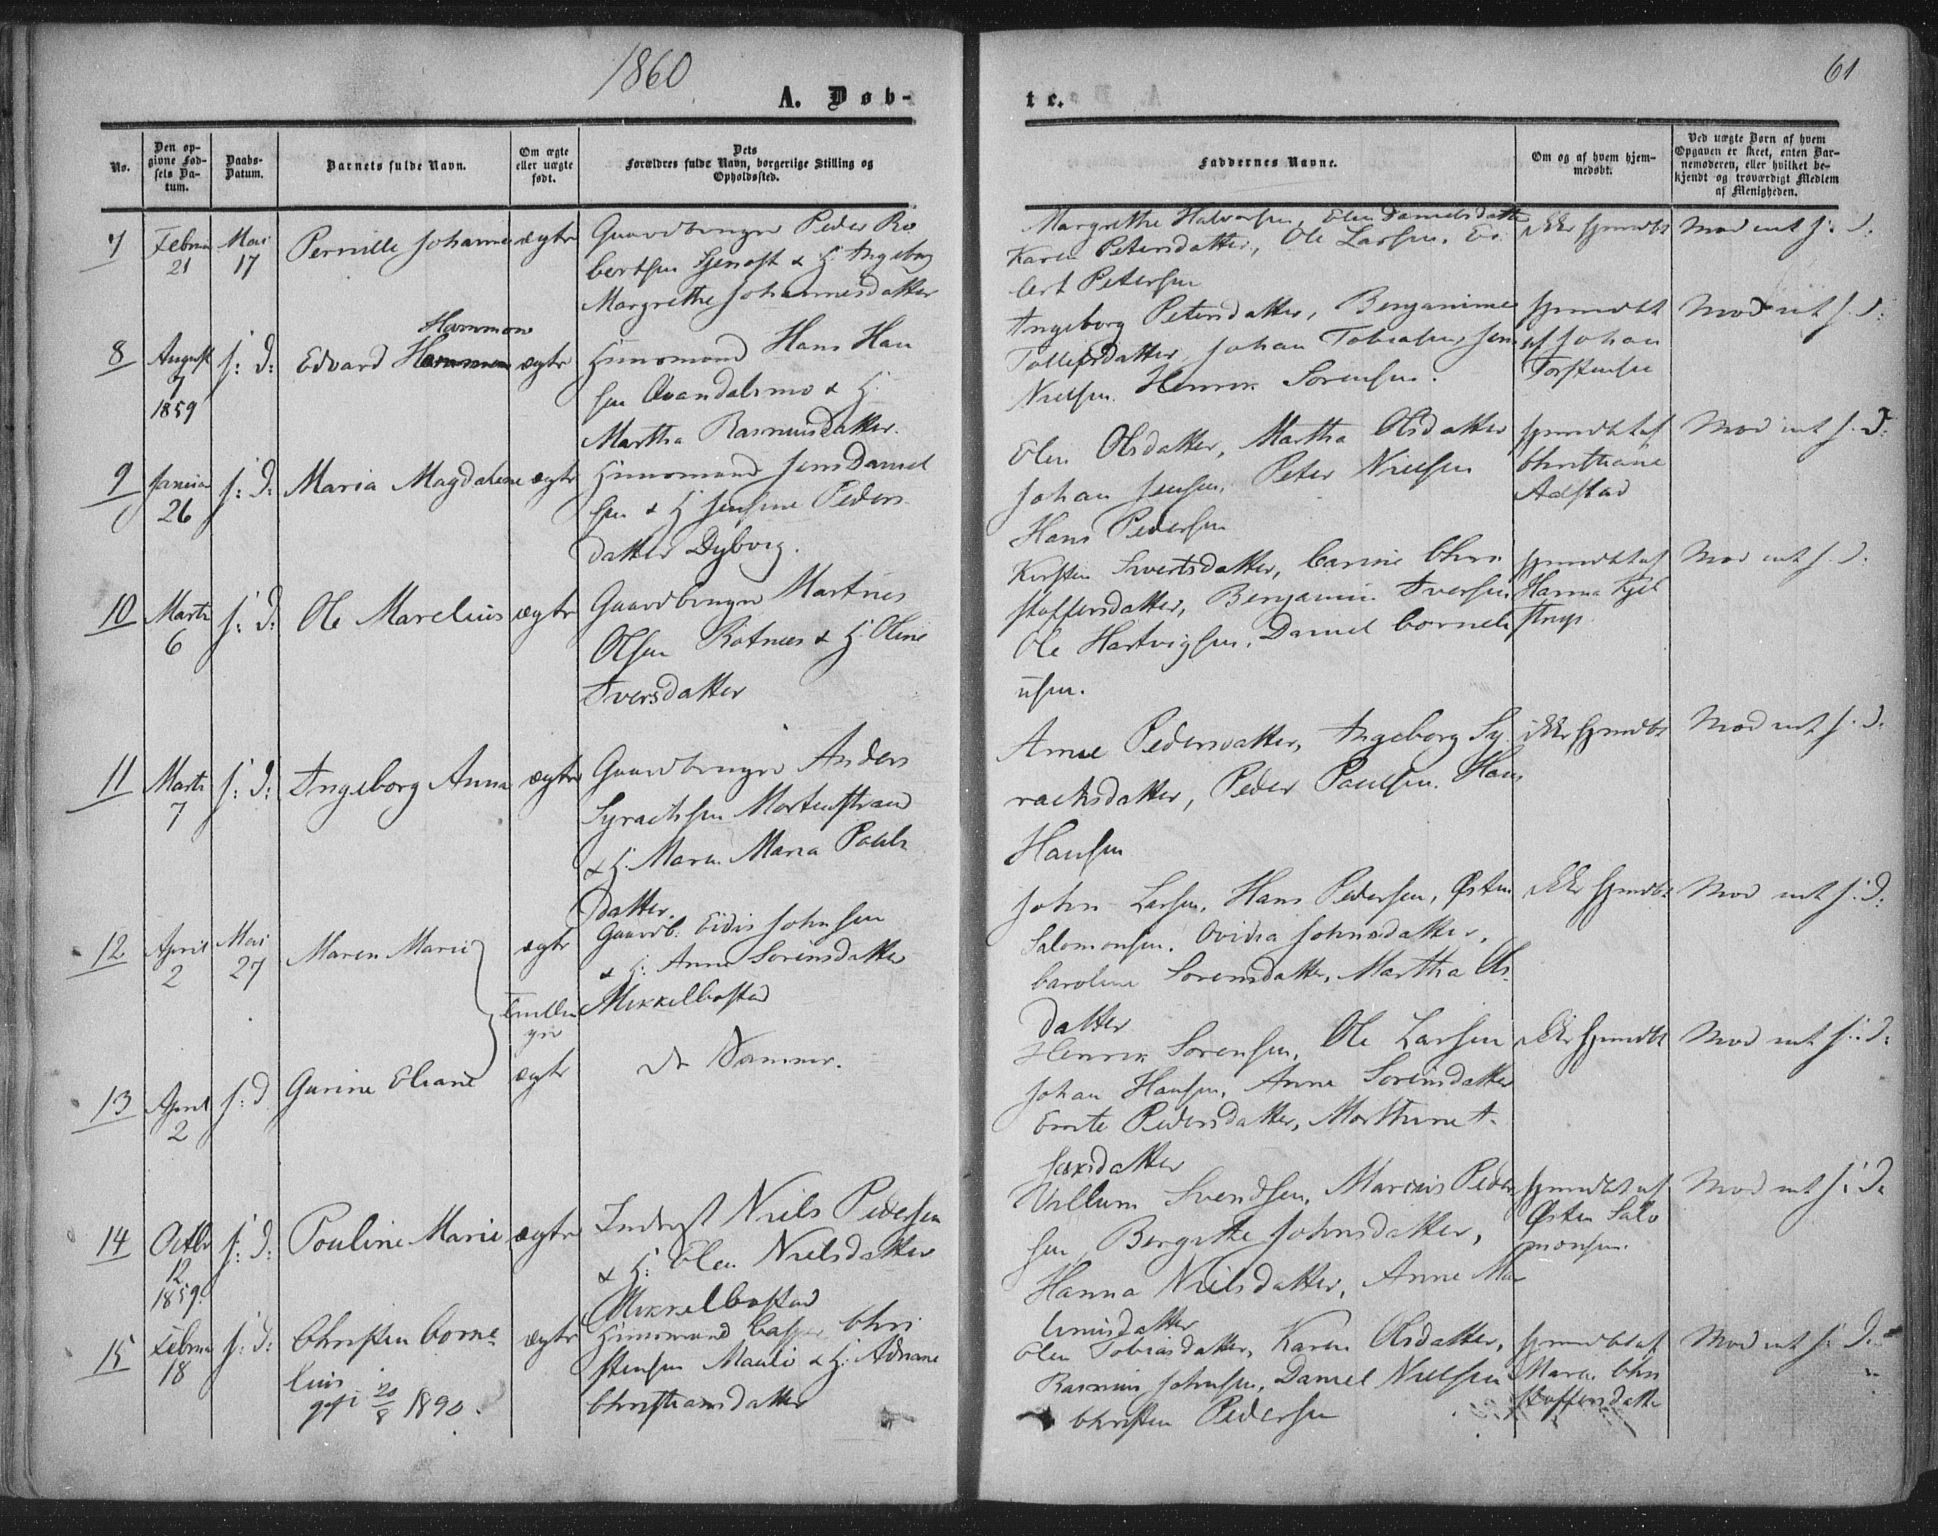 1860
61
A. Døb-
te.
No.
Den op-
givne Fød-
sels Da-
tum.
Daabs-
Datum.
Barnets fulde Navn.
Om ægte
eller uægte
født.
Dets
Forældres fulde Navn, borgerlige Stilling og
Opholdssted.
Faddernes Navne.
Om og af hvem hjem-
medøbt.
Ved uægte Børn af hvem
Opgaven er skeet, enten Bar-
nemoderen, eller hvilket be-
kjendt og troværdigt Medlem
af Menigheden.
7
Februar
21
Mai
17
Pernille Johanne
ægte
Gaardbruger Peder Ro
bertsen & H. Ingeborg
Margrethe Johannesdatter
Margrethe Halvorsen, Elen Danielsdatter
Karen Petersdatter, Ole Larsen,
Petersen
ikke hjemdbt
Mod int s: d:
8
August
7
1859
s: d:
Edvard Hammon
ægte
Huusmand Hans Han
sen Qvandalsmo & H.
Martha Rasmusdatter.
Ingeborg Petersdatter, Benjamine
Tollefsdatter, Johan Tobiasen, Jens
Nielsen, Henrik Sørensen.
hjemdbt
af Johan
Torstensen
Mod int s: d:
9
Januar
26
s: d:
Maria Magdalene
ægte
Huusmand Jens Daniel
sen & H. Jensine Peders
datter Dyborg.
Elen Olsdatter, Martha Olsdatter
Johan Jensen, Peter Nielsen
Hans Pedersen
hjemdbt af
Christiane
Adstad
Mod int s: d:
10
Marts
6
s: d:
Ole Marelius
ægte
Gaardbruger Martnes
Olsen Rotnes & H. Oline
Iversdatter
Kirsten Sivertsdatter, Carine Chri
stoffersdatter, Benjamin Iversen,
Ole Hartvigsen, Daniel Corneli
usen.
hjemdbt af
Hanna Kjel
strup
Mod int s: d:
11
Marts
7
s: d:
Ingeborg Anna
ægte
Gaardbruger Anders
Syrachsen Mortenstrand
& H. Maren Maria Pouls
datter.
Anne Pedersdatter, Ingeborg Sy
rachsdatter, Peder Poulsen, Hans
Hansen
ikke hjemdbt
Mod int s: d:
12
April
2
Mai
27
Maren Marie
ægte
Gaardb. Eidis Johnsen
& H: Anne Sørensdatter
Mikkelbostad
John Larsen, Hans Pedersen, Østen
Salomonsen, Ovidia Johnsdatter,
Caroline Sørensdatter, Martha Ols
datter
ikke hjemdbt
Mod int s: d:
Tvillin
ger
13
April
2
s: d
Gurine Eliane
ægte
De Samme.
Henrik Sørensen, Ole Larsen
Johan Hansen, Anne Sørensdatter
Pedersdatter, Marthine I
saxsdatter
ikke hjemdbt
Mod int s: d:
14
Octbr
12
1859.
s: d:
Pouline Marie
ægte
Inderst Niels Pedersen
& H: Elen Nielsdatter
Mikkelbostad
Villum Svendsen, Marcus Peder
sen, Bergitte Johnsdatter,
Hanna Nielsdatter, Anne Ma
datter
hjemdbt af
Østen Salo
monsen.
Mod int s: d:
15
Februar
18
s: d:
Christen Corne
lius
20/8 1890.
ægte
Huusmand Casper Chri
stensen Mauli & H. Adriane
Christiansdatter
Elen Tobiasdatter, Karen Olsdatter,
Rasmus Johnsen, Daniel Nielsen
Christen Pedersen
hjemdbt af
Maren Chri
stoffersdatter
Mod int s: d: